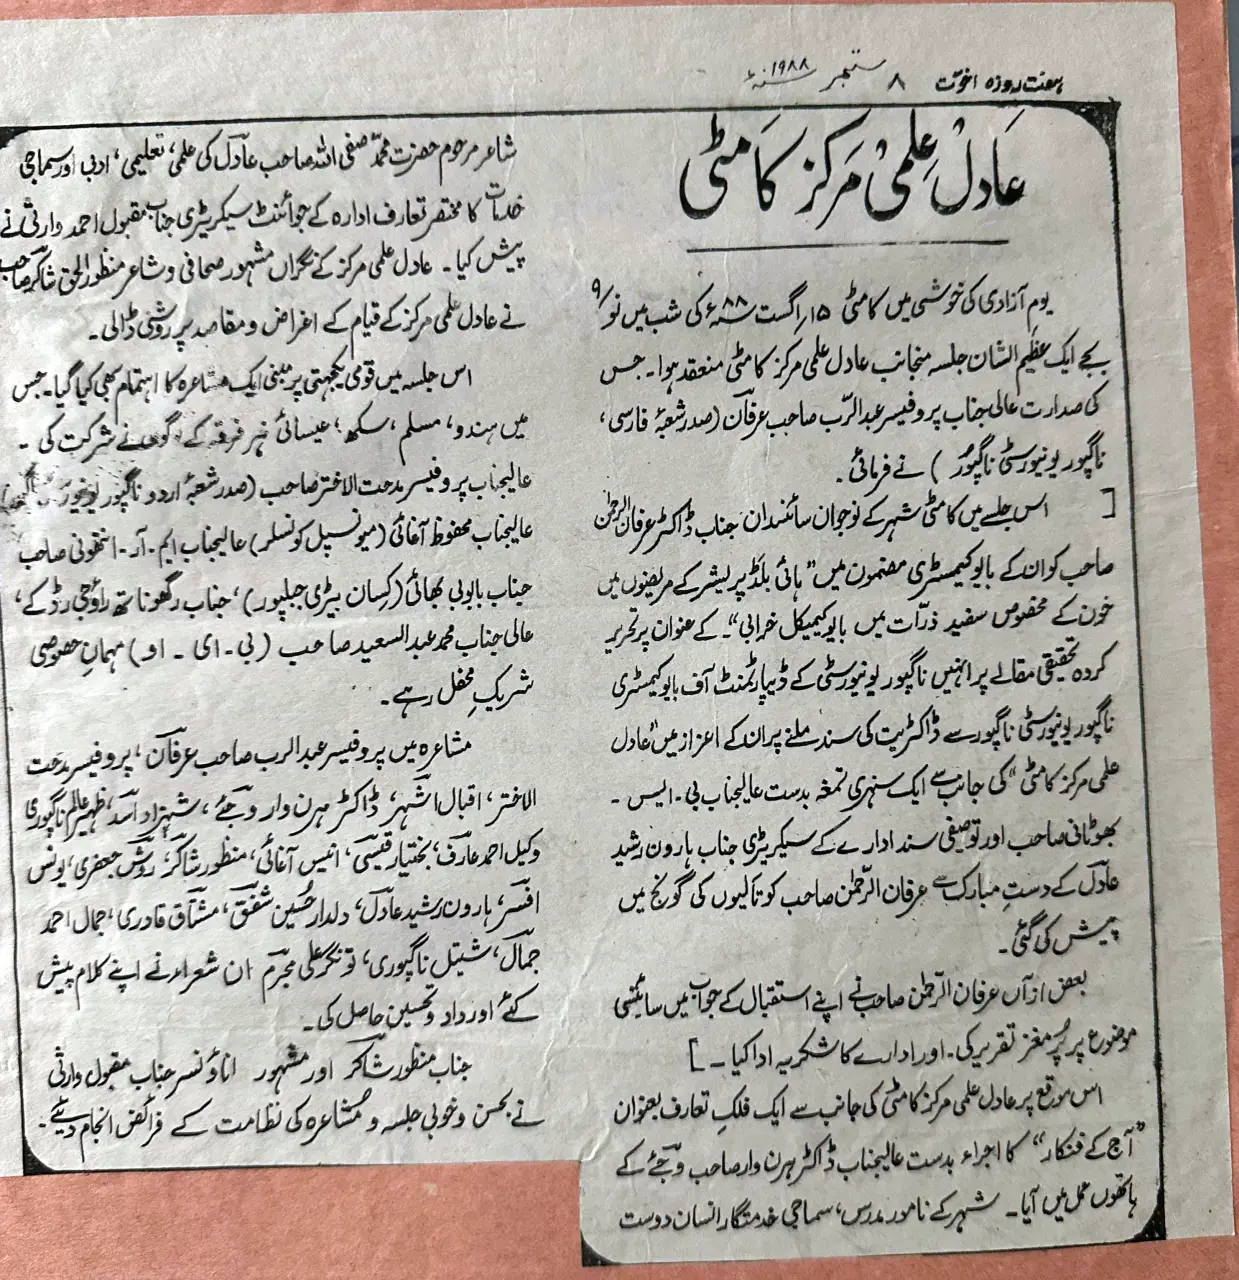 ہفت روزہ اخوت ۸ ستمبر ۱۹۸۸ء
عادل علمی مرکز کامٹی
یوم آزادی کی خوشی میں کامٹی ۱۵/اگست ۸۸ء کی شب میں نو/۹
بجے ایک عظیم الشان جلسہ منجانب عادل علمی مرکز کامٹی منعقد ہوا۔ جس
کی صدارت عالی جناب پروفیسر عبدالرّب صاحب عرفان (صدر شعبۂ فارسی،
ناگپور یونیورسٹی ناگپور) نے فرمائی۔
[ اس جلسے میں کامٹی شہر کے نوجوان سائنسدان جناب ڈاکٹر عرفان الرحمٰن
صاحب کو ان کے بایو کیمسٹری مضمون میں "ہائی بلڈ پریشر کے مریضوں میں
خون کے مخصوص سفید ذرّات میں بایو کیمیکل خرابی"۔ کے عنوان پر تحریر
کردہ تحقیقی مقالے پر انہیں ناگپور یونیورسٹی کے ڈیپارٹمنٹ آف بایو کیمسٹری
ناگپور یونیورسٹی ناگپور سے ڈاکٹریٹ کی سند ملنے پر ان کے اعزاز میں "عادل
علمی مرکز کامٹی" کی جانب سے ایک سنہری تمغہ بدست عالیجناب بی۔ایس۔
بھوٹانی صاحب اور توصیفی سند ادارے کے سیکریٹری جناب ہارون رشید
عادل کے دستِ مبارک سے عرفان الرّحمٰن صاحب کو تالیوں کی گونج میں
پیش کی گئی۔
بعض ازآں عرفان الرّحمٰن صاحب نے اپنے استقبال کے جواب میں سائنسی
موضوع پر پُر مغز تقریر کی۔ اور ادارے کا شکریہ ادا کیا۔ ]
اس موقع پر عادل علمی مرکز کامٹی کی جانب سے ایک فلکِ تعارف بعنوان
"آج کے فنکار" کا اجراء بدست عالیجناب ڈاکٹر ہرن وار صاحب وجئے کے
ہاتھوں عمل میں آیا۔ شہر کے نامور مدرس، سماجی خدمتگار انسان دوست
شاعر مرحوم حضرت محمّد صفی اللہ صاحب عادل کی علمی، تعلیمی، ادبی اور سماجی
خدمات کا مختصر تعارف ادارہ کے جوائنٹ سیکریٹری جناب مقبول احمد وارثی نے
پیش کیا۔ عادل علمی مرکز کے نگراں مشہور صحافی و شاعر منظور الحق شاکر صاحب
نے عادل علمی مرکز کے قیام کے اغراض و مقاصد پر روشنی ڈالی۔
اس جلسہ میں قومی یکجہتی پر مبنی ایک مشاعرہ کا اہتمام بھی کیا گیا۔ جس
میں ہندو، مسلم، سکھ، عیسائی ہر فرقہ کے لوگوں نے شرکت کی۔
عالیجناب پروفیسر مدحت الاختر صاحب (صدر شعبۂ اردو ناگپور یونیورسٹی
عالیجناب محفوظ آغائی (میونسپل کونسلر) عالیجناب ایم۔آر۔انتھونی صاحب
جناب بابوبی بھائی (کسان بیڑی جبلپور)، جناب رگھوناتھ راؤجی رڈکے،
عالی جناب محمد عبدالسعید صاحب (بی۔ای۔او) مہمانِ خصوصی
شریکِ محفل رہے۔
مشاعرہ میں پروفیسر عبدالرب صاحب عرفان، پروفیسر مدحت
الاختر، اقبال اشہر، ڈاکٹر ہرن وار وجئے، شہزاد اسد، ظہیر عالم ناگپوری
وکیل احمد عارف، بختیار قیسی، انیس آغائی، منظور شاکر، روش جعفری، یونس
افسر، ہارون رشید عادل، دلدار حسین شفق، مشتاق قادری، جمال احمد
جمال، شیتل ناگپوری، تونگر علی مجرم ان شعراء نے اپنے کلام پیش
کئے اور داد و تحسین حاصل کی۔
جناب منظور شاکر اور مشہور اناؤنسر جناب مقبول وارثی
نے بحسن و خوبی جلسہ و مشاعرہ کی نظامت کے فرائض انجام دیئے۔